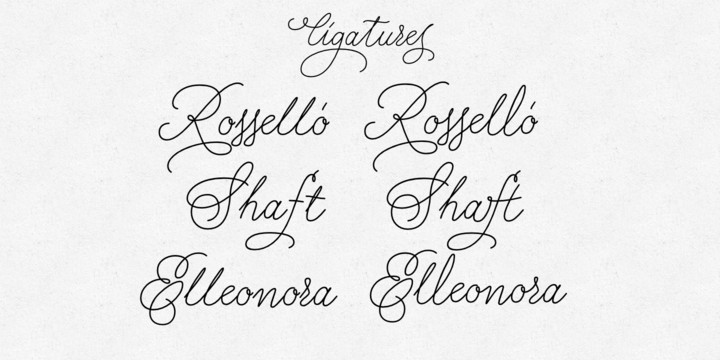 Ligatures
Rosselló Rosselló
Shaft Shaft
Elleonora Elleonora